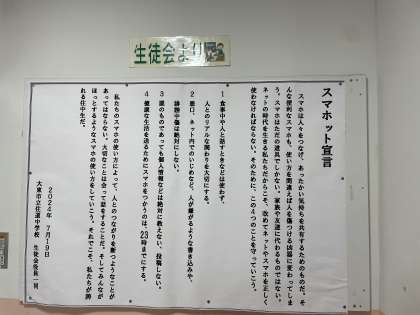 生徒会より
スマホット宣言
スマホは人々をつなげ、あったかい気持ちを共有するためのものだ。そ
んな便利なスマホも、使い方を間違えば人を傷つける凶器に変わってしま
う。スマホはただの道具でしかない。家族や友達に代わるものではない。
ネットの時代を生きる私たちだからこそ、改めてネットやスマホを正しく
使わなければならない。そのために、この4つのことを守っていこう。
1 食事中や人と話すときなどは使わず、
人とのリアルな関わりを大切にする。
2 悪口、ネット内でのいじめなど、人が嫌がるような書き込みや、
誹謗中傷は絶対にしない。
3 誰のものであっても個人情報などは絶対に教えない、投稿しない。
4 健康な生活を送るためにスマホをつかうのは、23時までにする。
私たちのスマホの使い方によって、人とのつながりを断つようなことが
あってはならない。大切なことは会って話をすることだ。そしてみんなが
ほっとするようなスマホの使い方をしていこう。それでこそ、私たちが誇
れる住中生だ。
2024年 7月19日
大東市立住道中学校 生徒会役員一同